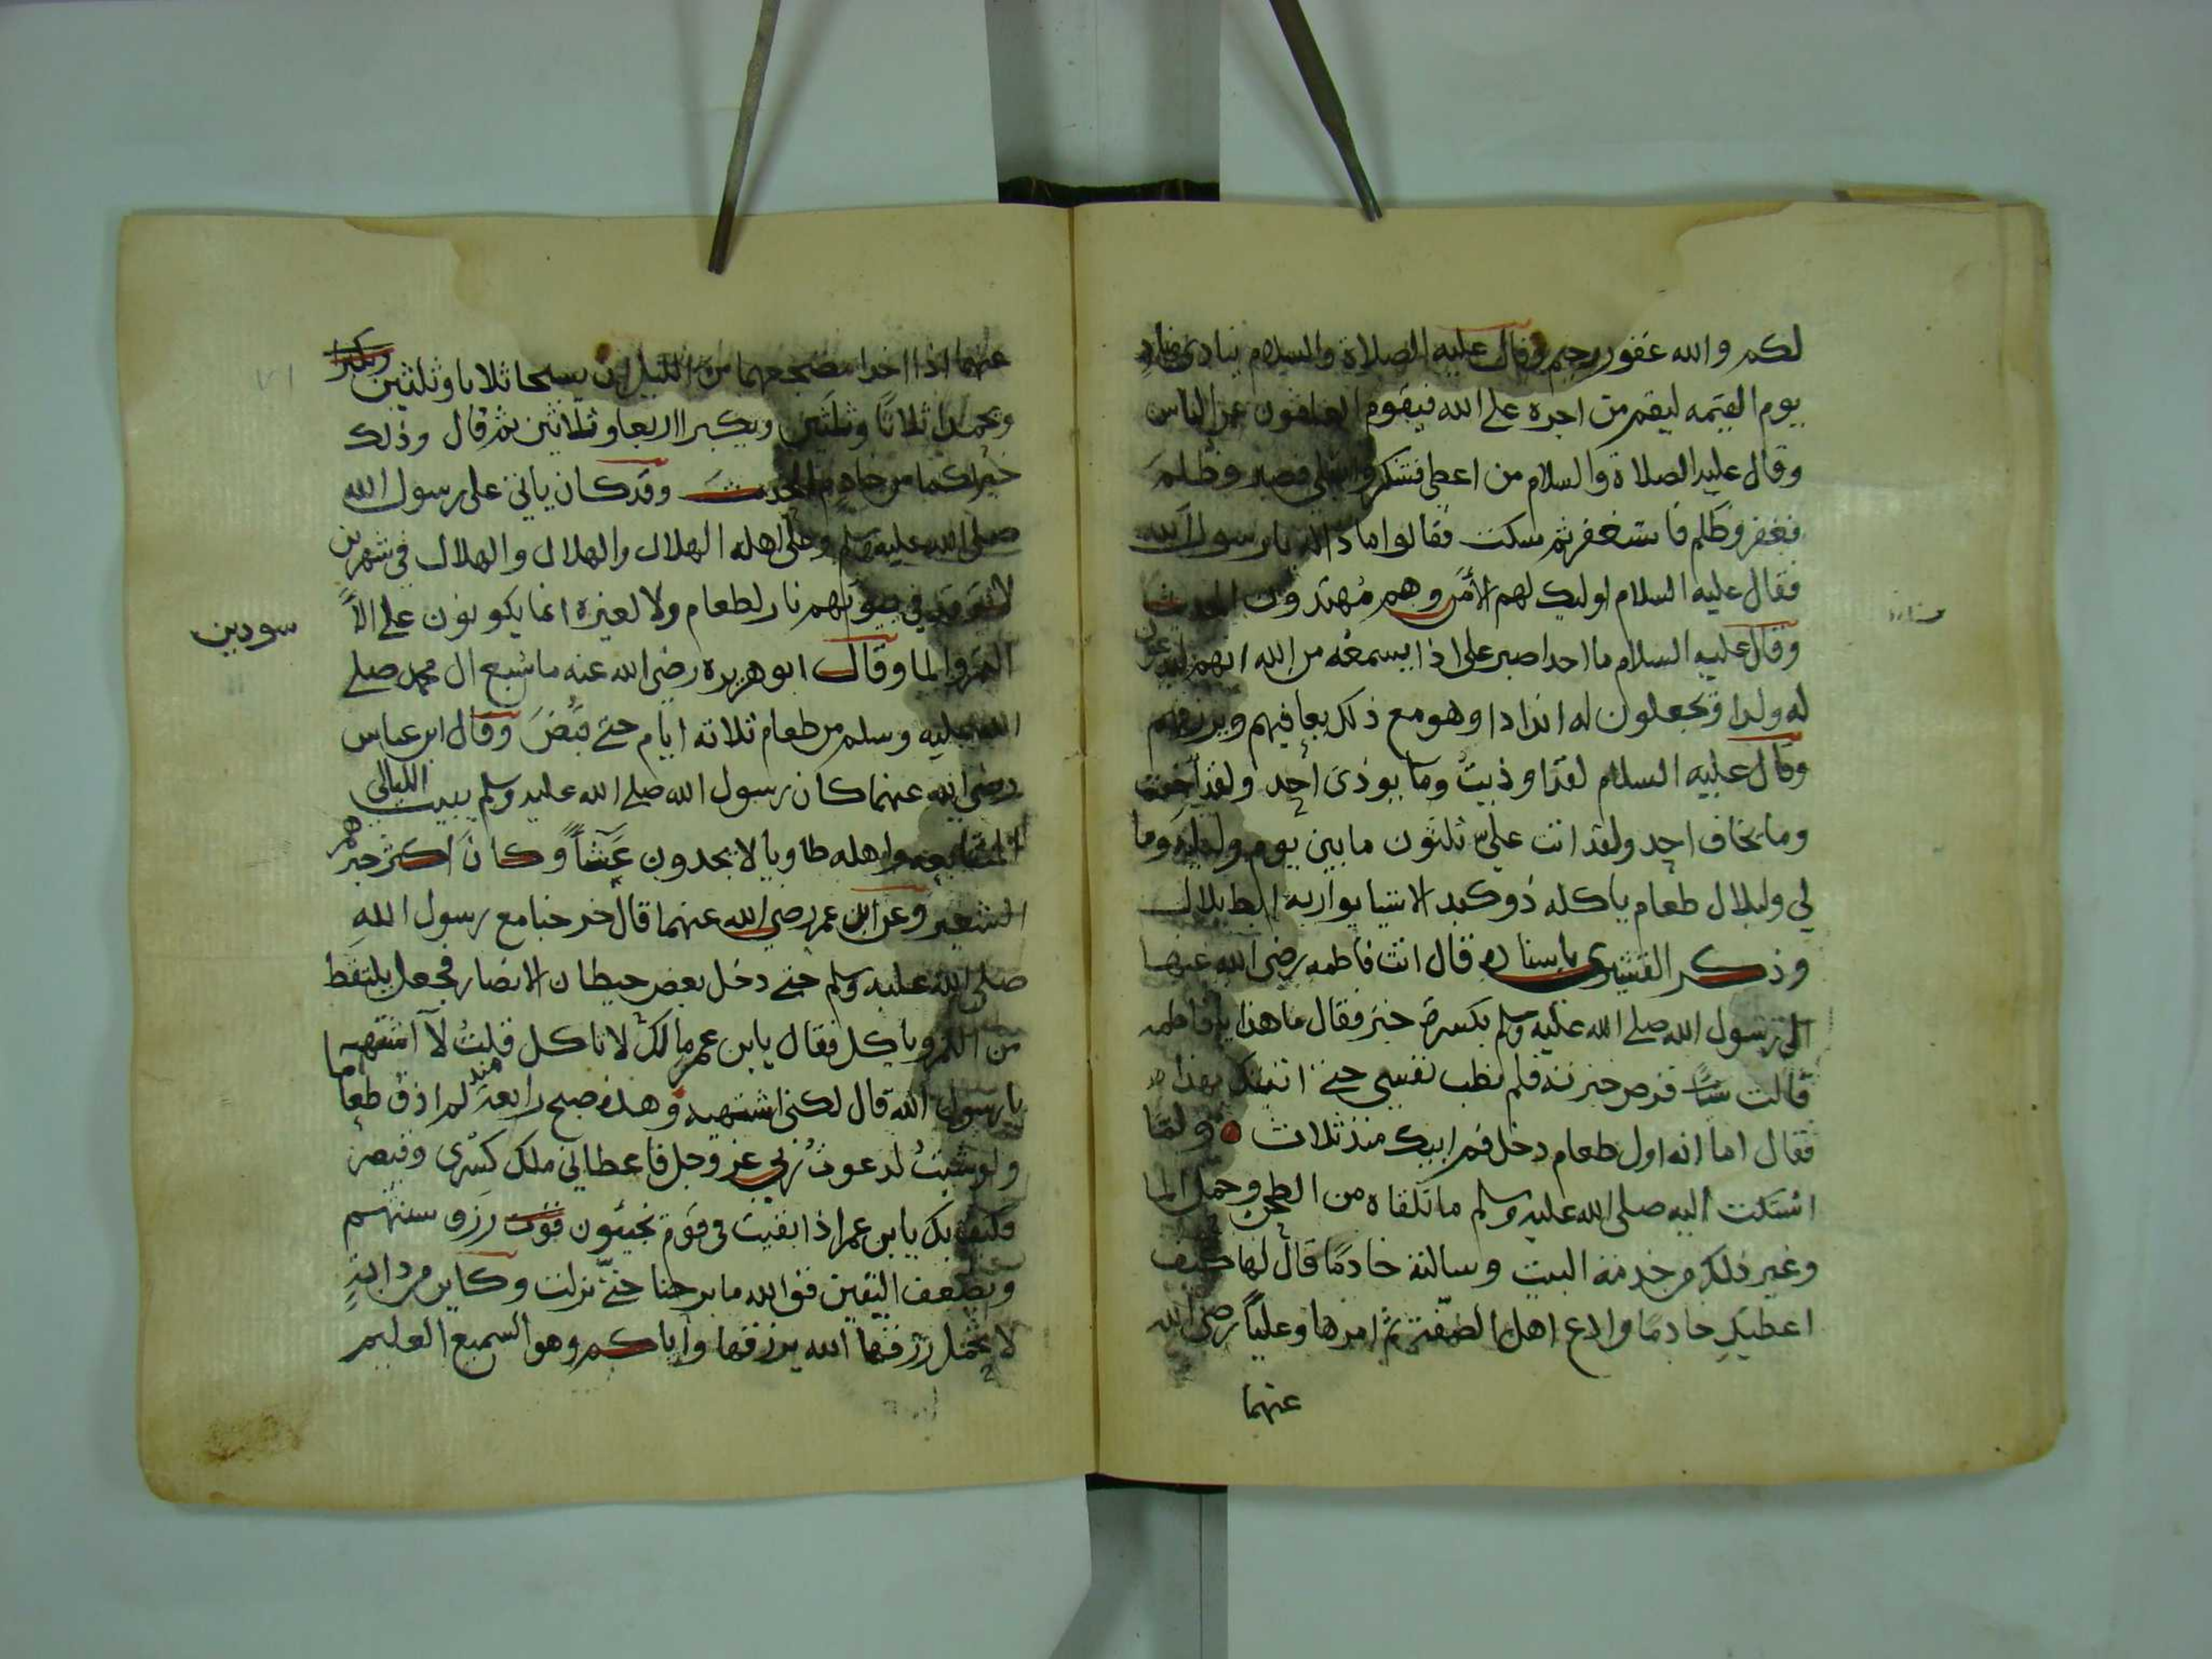 لكم والله غفور رحيم وقال عليه الصلاة والسلام ينادي مناد
يوم القيمه ليقم من اجره على الله فيقوم العافون عن الناس
وقال عليه الصلاة والسلام من اعطي فشكر وابتلي فصبر وظلم
فغفر وظلم فاستغفر ثم سكت فقالوا ماذا له يا رسول الله
فقال عليه السلام اوليك لهم الأمن وهم مهتدون الحديث
وقال عليه السلام ما احد اصبر على اذا يسمعه من الله انهم
له ولدا ويجعلون له اندادا وهو مع ذلك يعافيهم ويرزقهم
وقال عليه السلام لقد اوذيت وما يوذى احد ولقد اخفت
وما يخاف احد ولقد اتت علي ثلثون ما بين يوم وليلة وما
لي ولبلال طعام ياكله ذو كبد الا شيا يواريه ابط بلال
وذكر القشيري باسناده قال اتت فاطمه رضي الله عنها
الى رسول الله صلى الله عليه وسلم بكسرة خبز فقال ما هذا يا فاطمه
قالت قرص خبزته فلم تطب نفسي حتى اتيتك بهذا
فقال اما انه اول طعام دخل فم ابيك منذ ثلاث ولما
اشتكت اليه صلى الله عليه وسلم ما تلقاه من الطحن وحمل الما
وغير ذلك من خدمة البيت وسالته خادما قال لها كيف
اعطيك خادما وادع اهل الصفة ثم امرها وعليا رضي الله
عنهما
عنهما اذا اخذا مضجعهما من الليل ان يسبحا ثلاثا وثلثين
ويحمدا ثلاثا وثلثين ويكبرا اربعا وثلاثين ثم قال وذلك
خير لكما من خادم الحديث وقد كان ياتي على رسول الله
صلى الله عليه وسلم وعلى اهله الهلال والهلال والهلال في شهرين
لا توقد في بيوتهم نار لطعام ولا لغيره انما يكونون على الا
سودين
التمر والما وقال ابو هريره رضي الله عنه ما شبع ال محمد صلى
الله عليه وسلم من طعام ثلاثه ايام حتى قبض وقال ابن عباس
رضي الله عنهما كان رسول الله صلى الله عليه وسلم يبيت الليالي
المتتابعه واهله طاويا لا يجدون عشآ وكان اكثر خبزهم
الشعير وعن ابن عمر رضي الله عنهما قال خرجنا مع رسول الله
صلى الله عليه وسلم حتى دخل بعض حيطان الانصار فجعل يلتقط
من التمر وياكل فقال يابن عمر مالك لا تاكل قلت لا اشتهيه
يا رسول الله قال لكني اشتهيه وهذه صبح رابعة منذ لم اذق طعاما
ولو شيت لدعوت ربي عز وجل فاعطاني ملك كسرى وقيصر
فكيف بك يابن عمر اذا بقيت في قوم يخبئون قوت رزق سنتهم
ويضعف اليقين فوالله ما برحنا حتى نزلت وكاين من دابة
لا تحمل رزقها الله يرزقها واياكم وهو السميع العليم